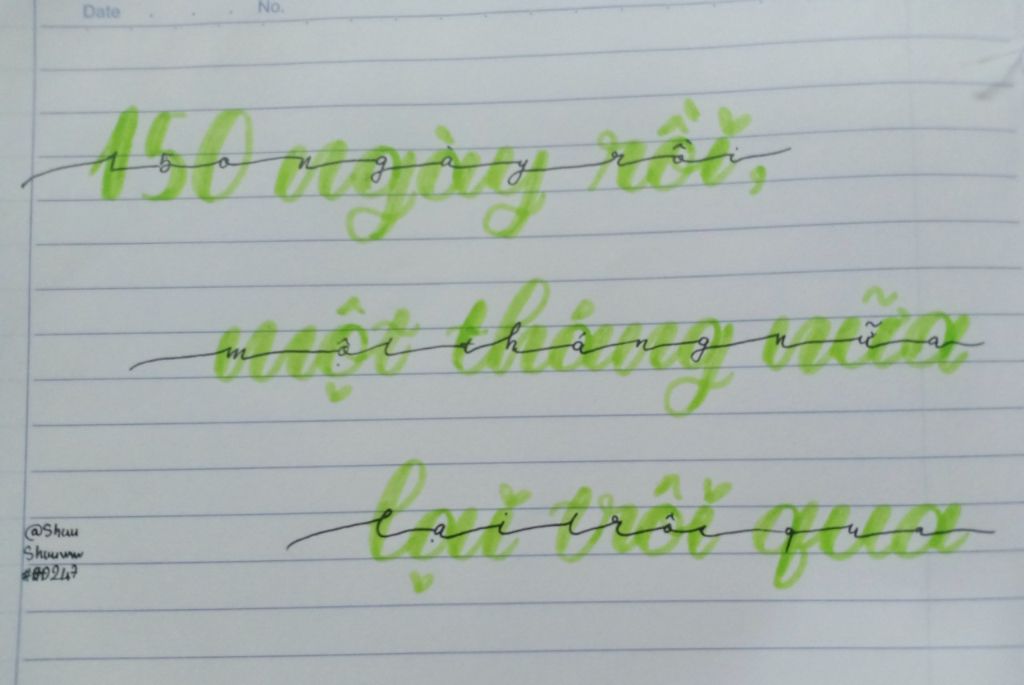 Date . . . No.
150 ngày rồi,
một tháng nữa
lại trôi qua
@Shuu
Shuuuuu
#00247